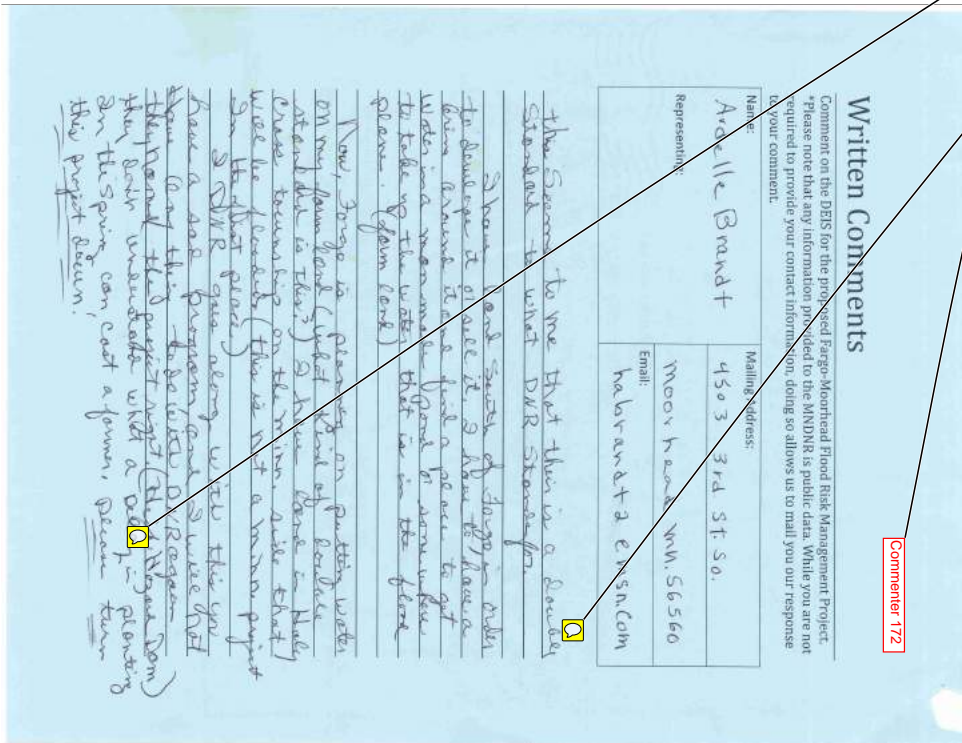 Commenter 172
Written Comments
Comment on the DEIS for the proposed Fargo-Moorhead Flood Risk Management Project.
*Please note that any information provided to the MNDNR is public data. While you are not
required to provide your contact information, doing so allows us to mail you our response
to your comment.
Name:
Ardelle Brandt
Mailing Address:
4503 3rd St. So.
Representing:
Moorhead mn. 56560
Email:
habrandt2@msn.com
this Seems to me that their is a Double
Standard to what DNR Stands for.
I have land South of Fargo in order
to develope it or sell it, I have to, have a
drain around it and find a place to get
water in a man made pond or some where
to take up the water that is in the flood
plane. (farm land)
Now, Fargo is planning on putting water
on my farm land (what kind of double
standard is this?) I have land in Holy
Cross township on the minn. side that
will be flooded (this is not a minn. project
In the first place.)
I DNR goes along with this yo
have a sad program, and I will not
have any thing to do with DNR again
they, don't understand what a
In the Spring can cost a farmer, Please turn
this project down.